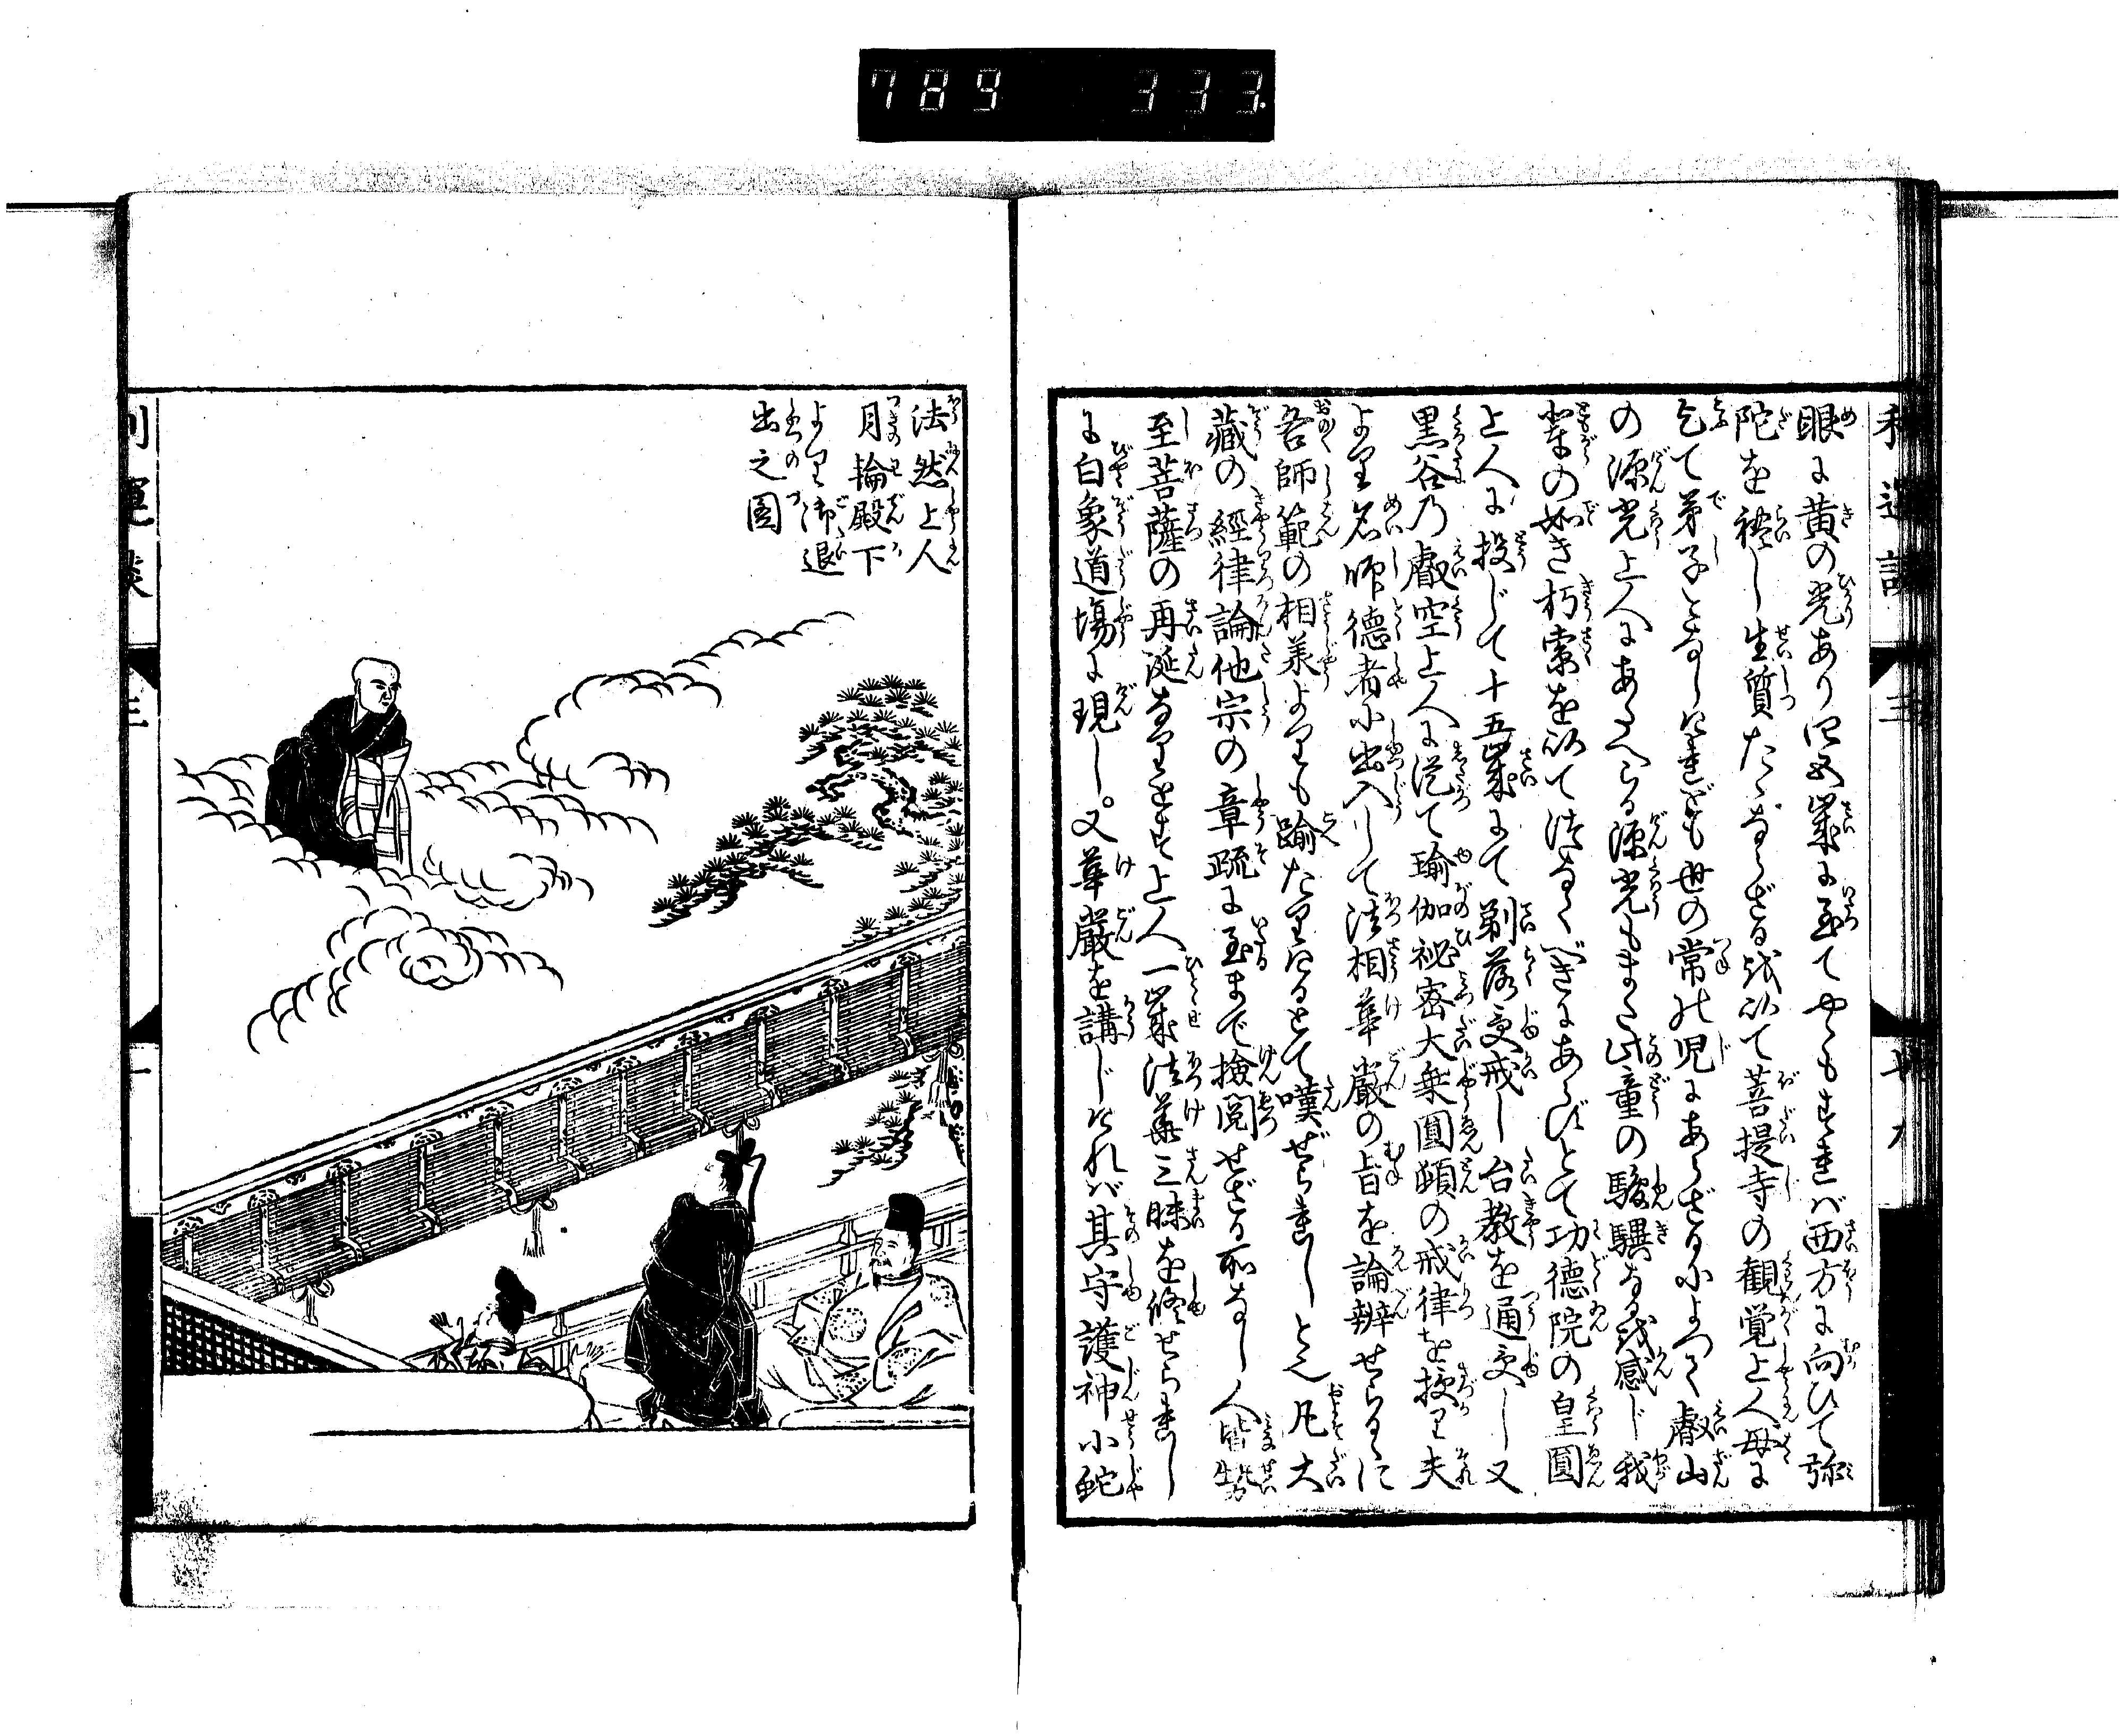 789 333.
眼に黄の光あり四五歳に至てやゝもすれば西方に向ひて弥
陀を礼し生質たゞならざるを以て菩提寺の観覚上人母に
乞て弟子となしけれども世の常の児にあらざるによつて叡山
の源光上人にあたへらる源光もまた此童の駿驥なるを感じ我
輩の如き朽索を以て繋ぐべきにあらずとて功徳院の皇圓
上人に投じて十五歳にて剃落受戒し台教を通受し又
黒谷乃叡空上人に従て瑜伽祕密大乗圓頓の戒律を授り夫
より名師徳者に出入して法相華厳の旨を論辨せらるゝに
各師範の相承よりも踰たりけるとて嘆ぜられしとぞ凡大
藏の經律論他宗の章疏に至まで撿閲せざる所なし人皆勢
至菩薩の再誕なりとす上人一歳法華三昧を修せられし
に白象道場に現し。又華嚴を講じければ其守護神小蛇
法然上人
月輪殿下
より御退
出之図
三